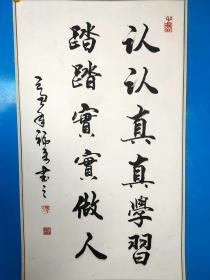 认认真真學習
踏踏實實做人